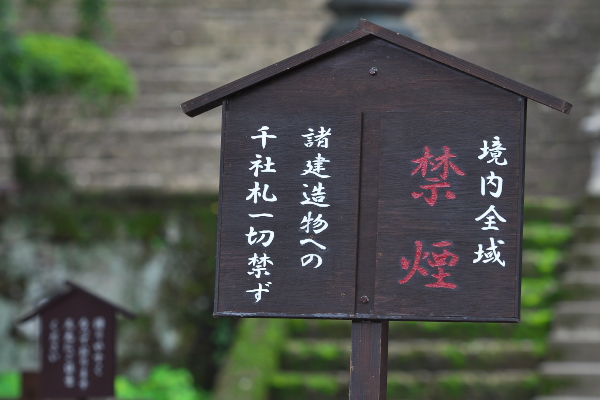 境内全域
禁煙
諸建造物への
千社札一切禁ず